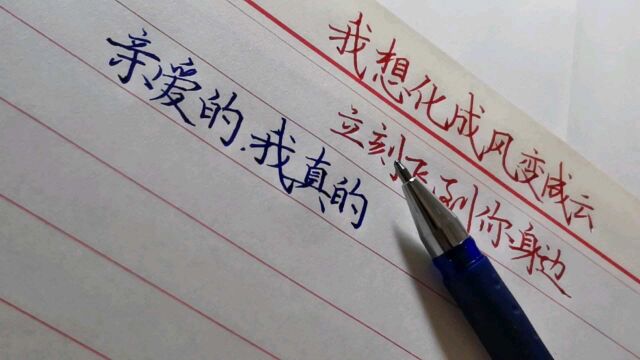 我想化成风变成云
立刻飞到你身边
亲爱的，我真的